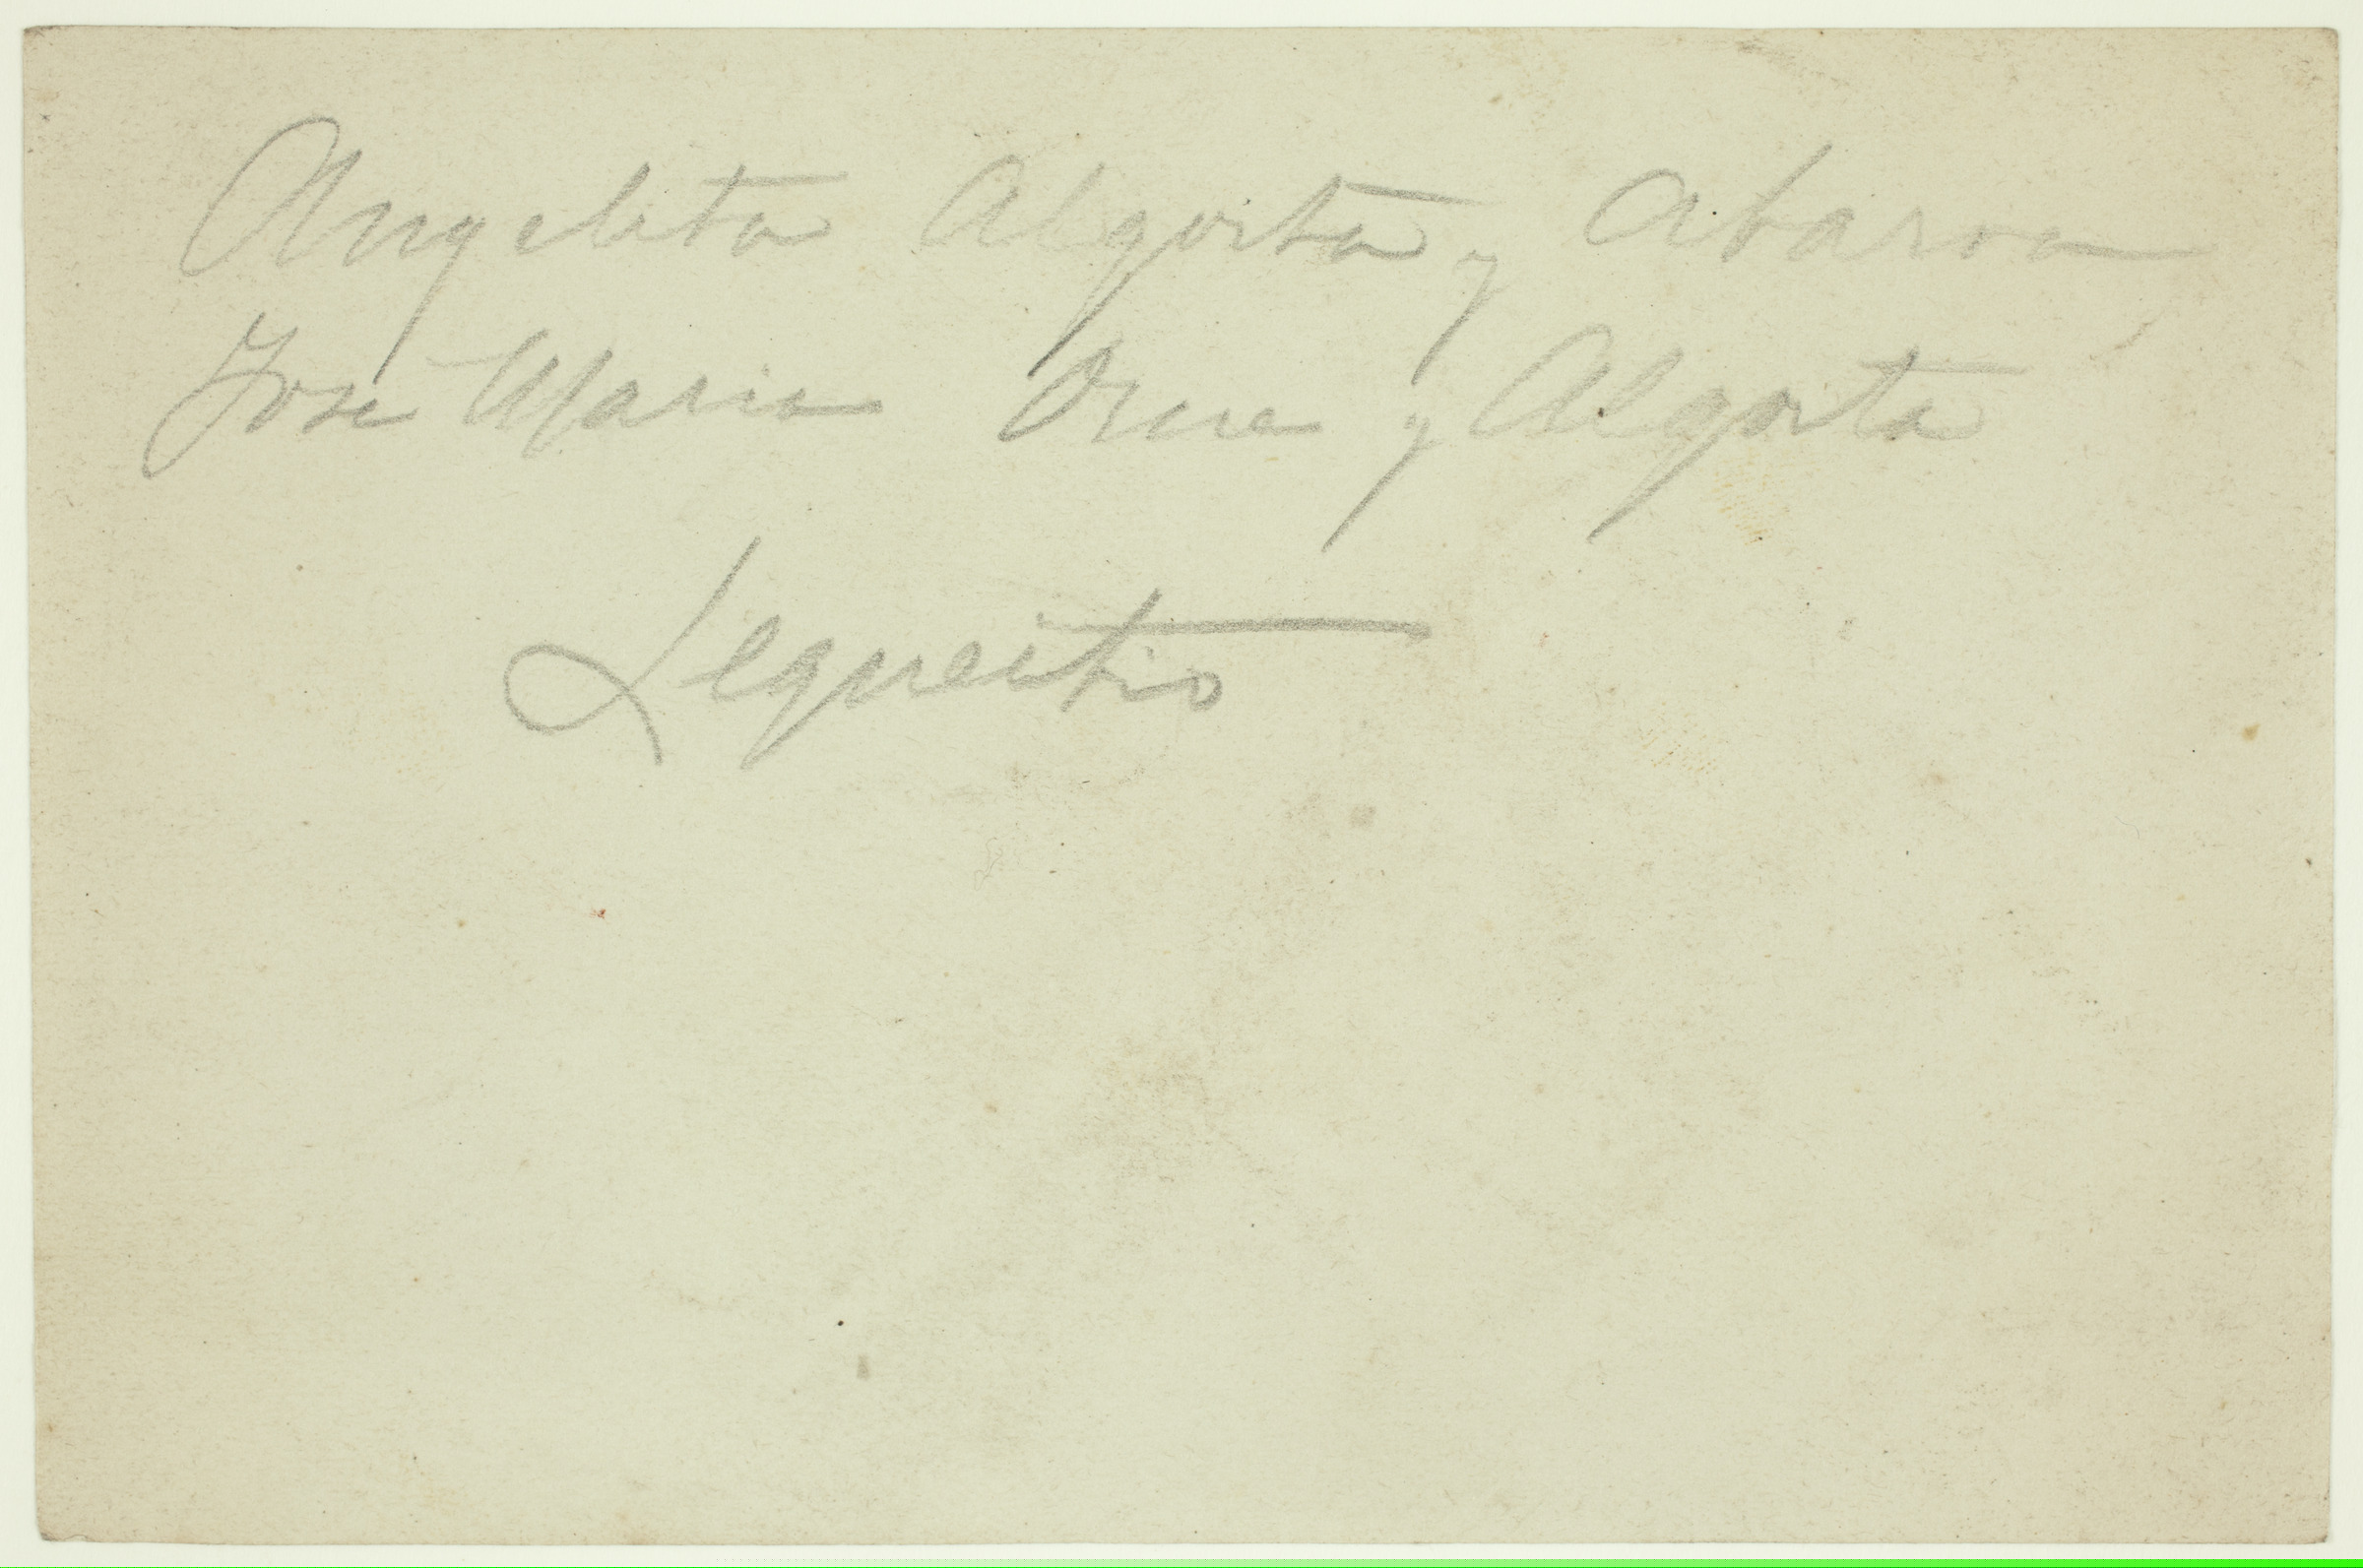 Angelita Algorta y Abaroa,
José Maria Orue y Algorta
Lequeitio